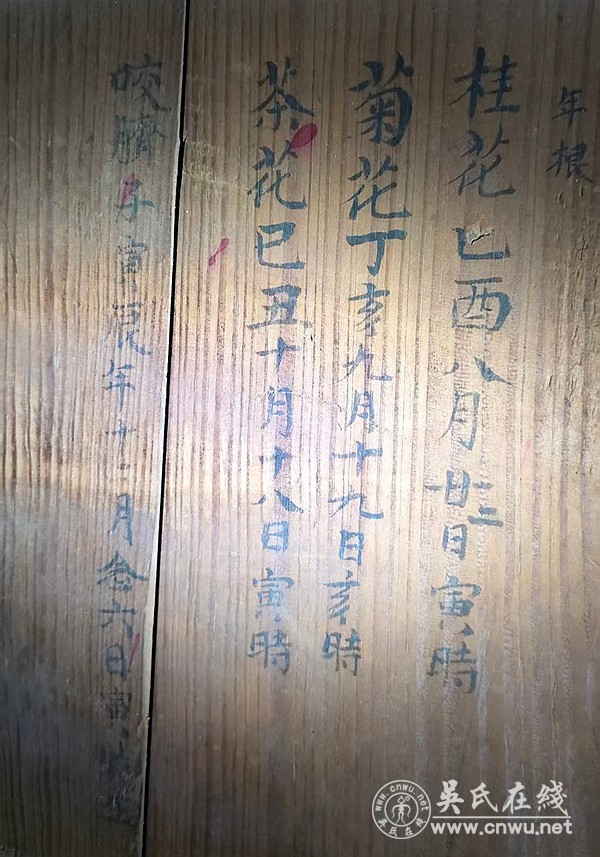 年根
桂花己酉八月廿三日寅時
菊花丁亥九月十九日亥時
茶花巳丑十月十八日寅時
咬臍子寅辰年十一月念六日寅
吴氏在线
www.cnwu.net